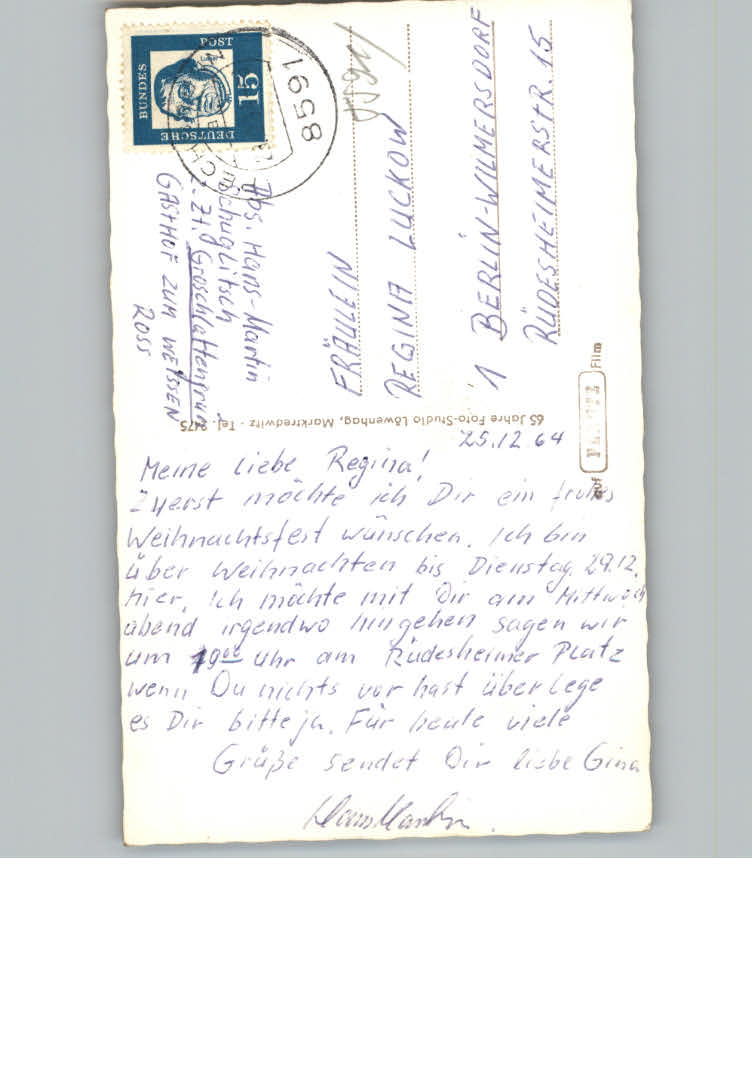 25.12.64
Meine liebe Regina!
Zuerst möchte ich Dir ein frohes
Weihnachtsfest wünschen. Ich bin
über Weihnachten bis Dienstag 29.12.
hier. Ich möchte mit Dir am Mittwoch
abend irgendwo hingehen sagen wir
um 19⁰⁰ Uhr am Rüdesheimer Platz
wenn Du nichts vor hast überlege
es Dir bitte ja. Für heute viele
Grüße sendet Dir liebe Gina
Hans Martin
Abs. Hans-Martin
Schuglitsch
z. Zt. Groschlattengrün
GASTHOF ZUM WEISSEN
ROSS
FRÄULEIN
REGINA LUCKOW
1 BERLIN-WILMERSDORF
RÜDESHEIMERSTR. 15
DEUTSCHE
BUNDES
POST
15
8591
65 Jahre Foto-Studio Löwenhag, Marktredwitz - Tel. 2475
auf
Film